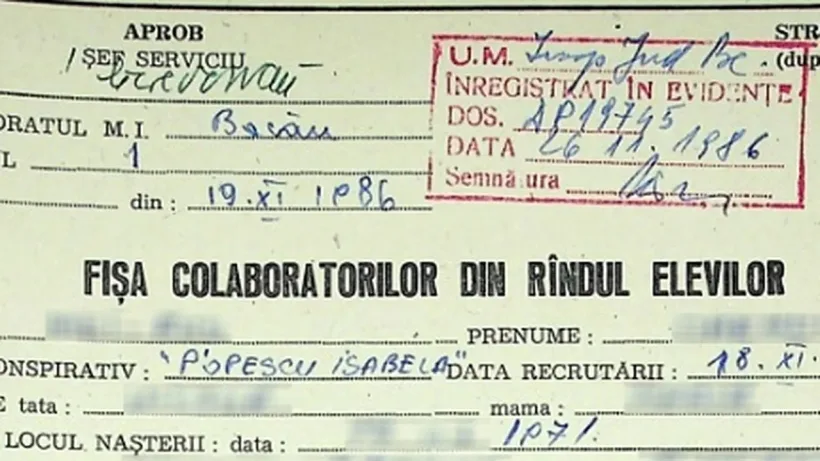 APROB STR
ŞEF SERVICIU (dup
U.M. Insp Jud Bc.
ÎNREGISTRAT ÎN EVIDENŢE
DOS. AP19745
DATA 26 11. 1986
Semnătura
ORATUL M. I. Bacău
L 1
din : 19. XI 1986
FIŞA COLABORATORILOR DIN RÎNDUL ELEVILOR
PRENUME :
ONSPIRATIV : "POPESCU ISABELA" DATA RECRUTĂRII : 18. XI.
E tata : mama :
LOCUL NAŞTERII : data : 1971.